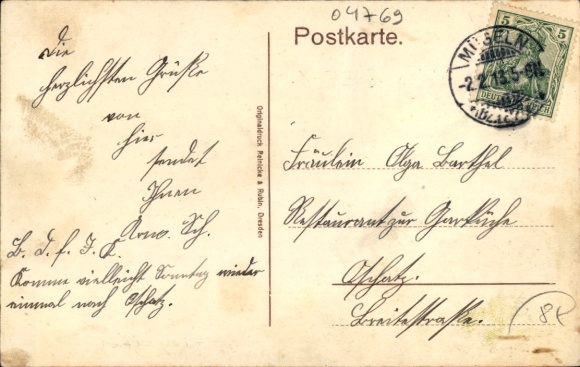 04769
Postkarte.
5 5
DEUTSCHES REICH
MÜGELN
-2.2.13.5-6N.
(BZ. LEIPZIG)
Die
herzlichsten Grüße
von
hier
sendet
Ihnen
Arno. Sch.
B. d. f. I. L.
Komme vielleicht Sonntag wieder
einmal nach Oschatz.
Originaldruck Reinicke & Rubin, Dresden
Fräulein Olga Barthel
Restaurant zur Garküche
Oschatz.
Breitestraße.